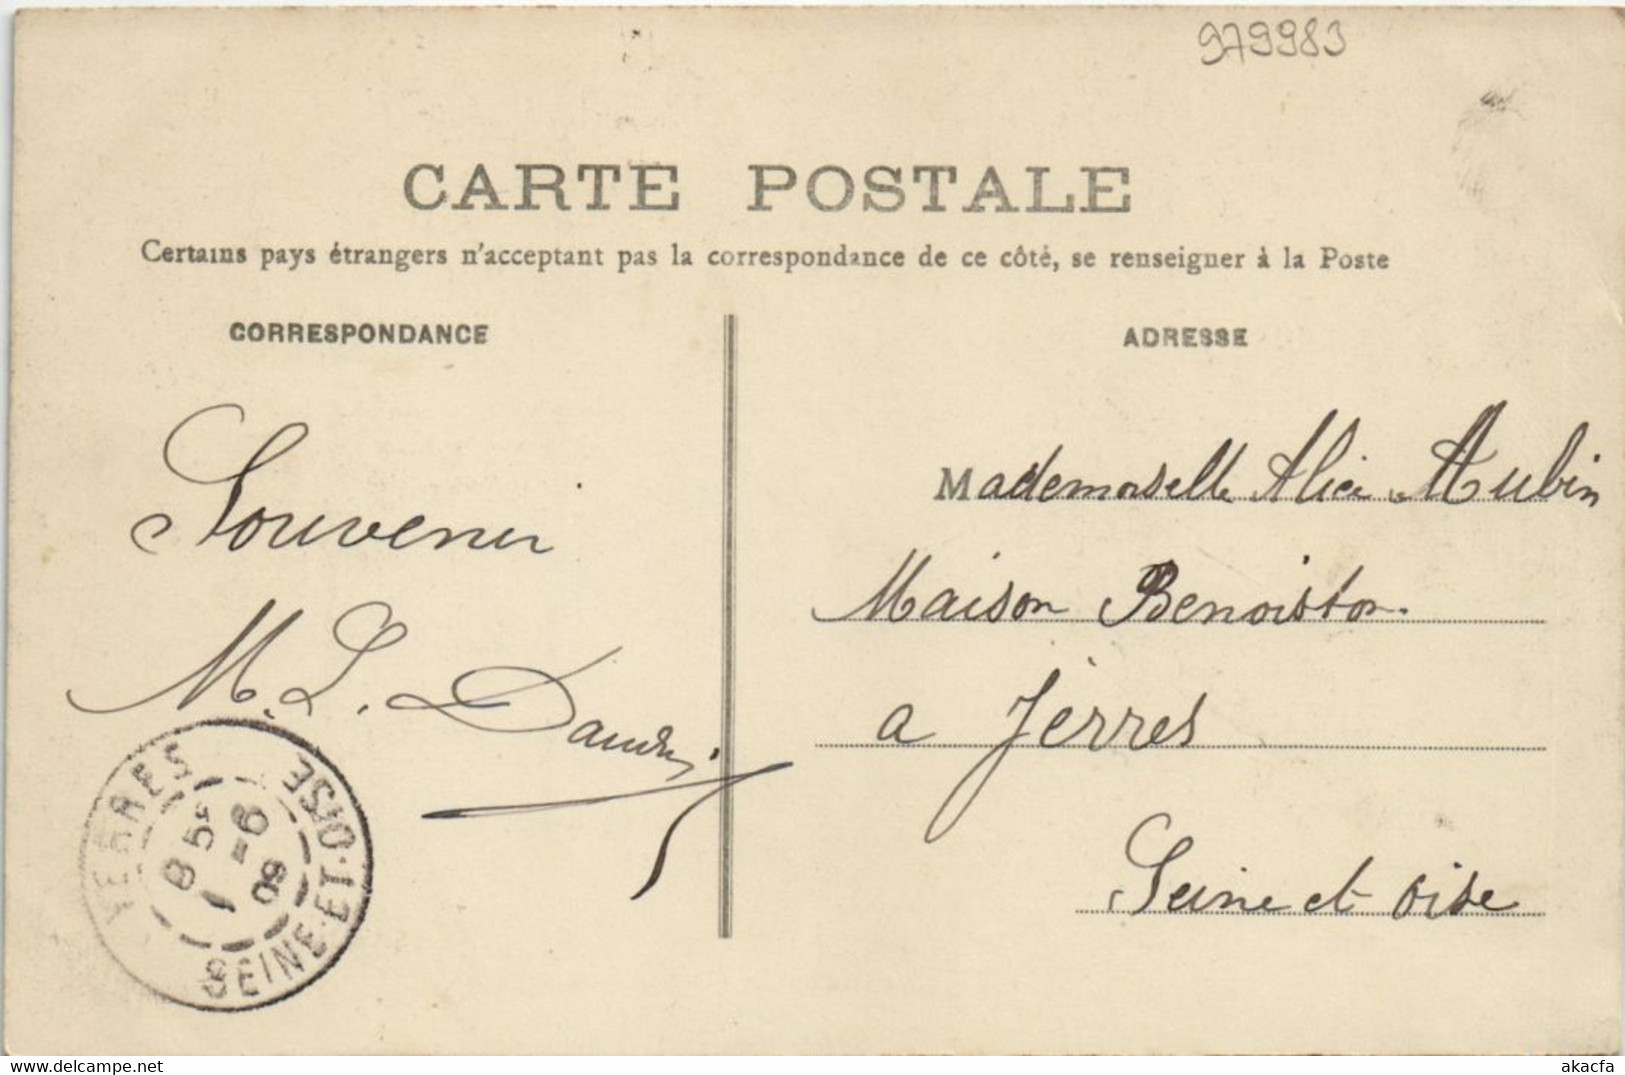 979983
CARTE POSTALE
Certains pays étrangers n'acceptant pas la correspondance de ce côté, se renseigner à la Poste
CORRESPONDANCE
ADRESSE
Souvenir
M. L.
Mademoiselle Alice Aubin
Maison Benoiston
a Jerres
Seine et oise
YERRES
8 5
-6
09
SEINE-ET-OISE
www.delcampe.net
akacfa